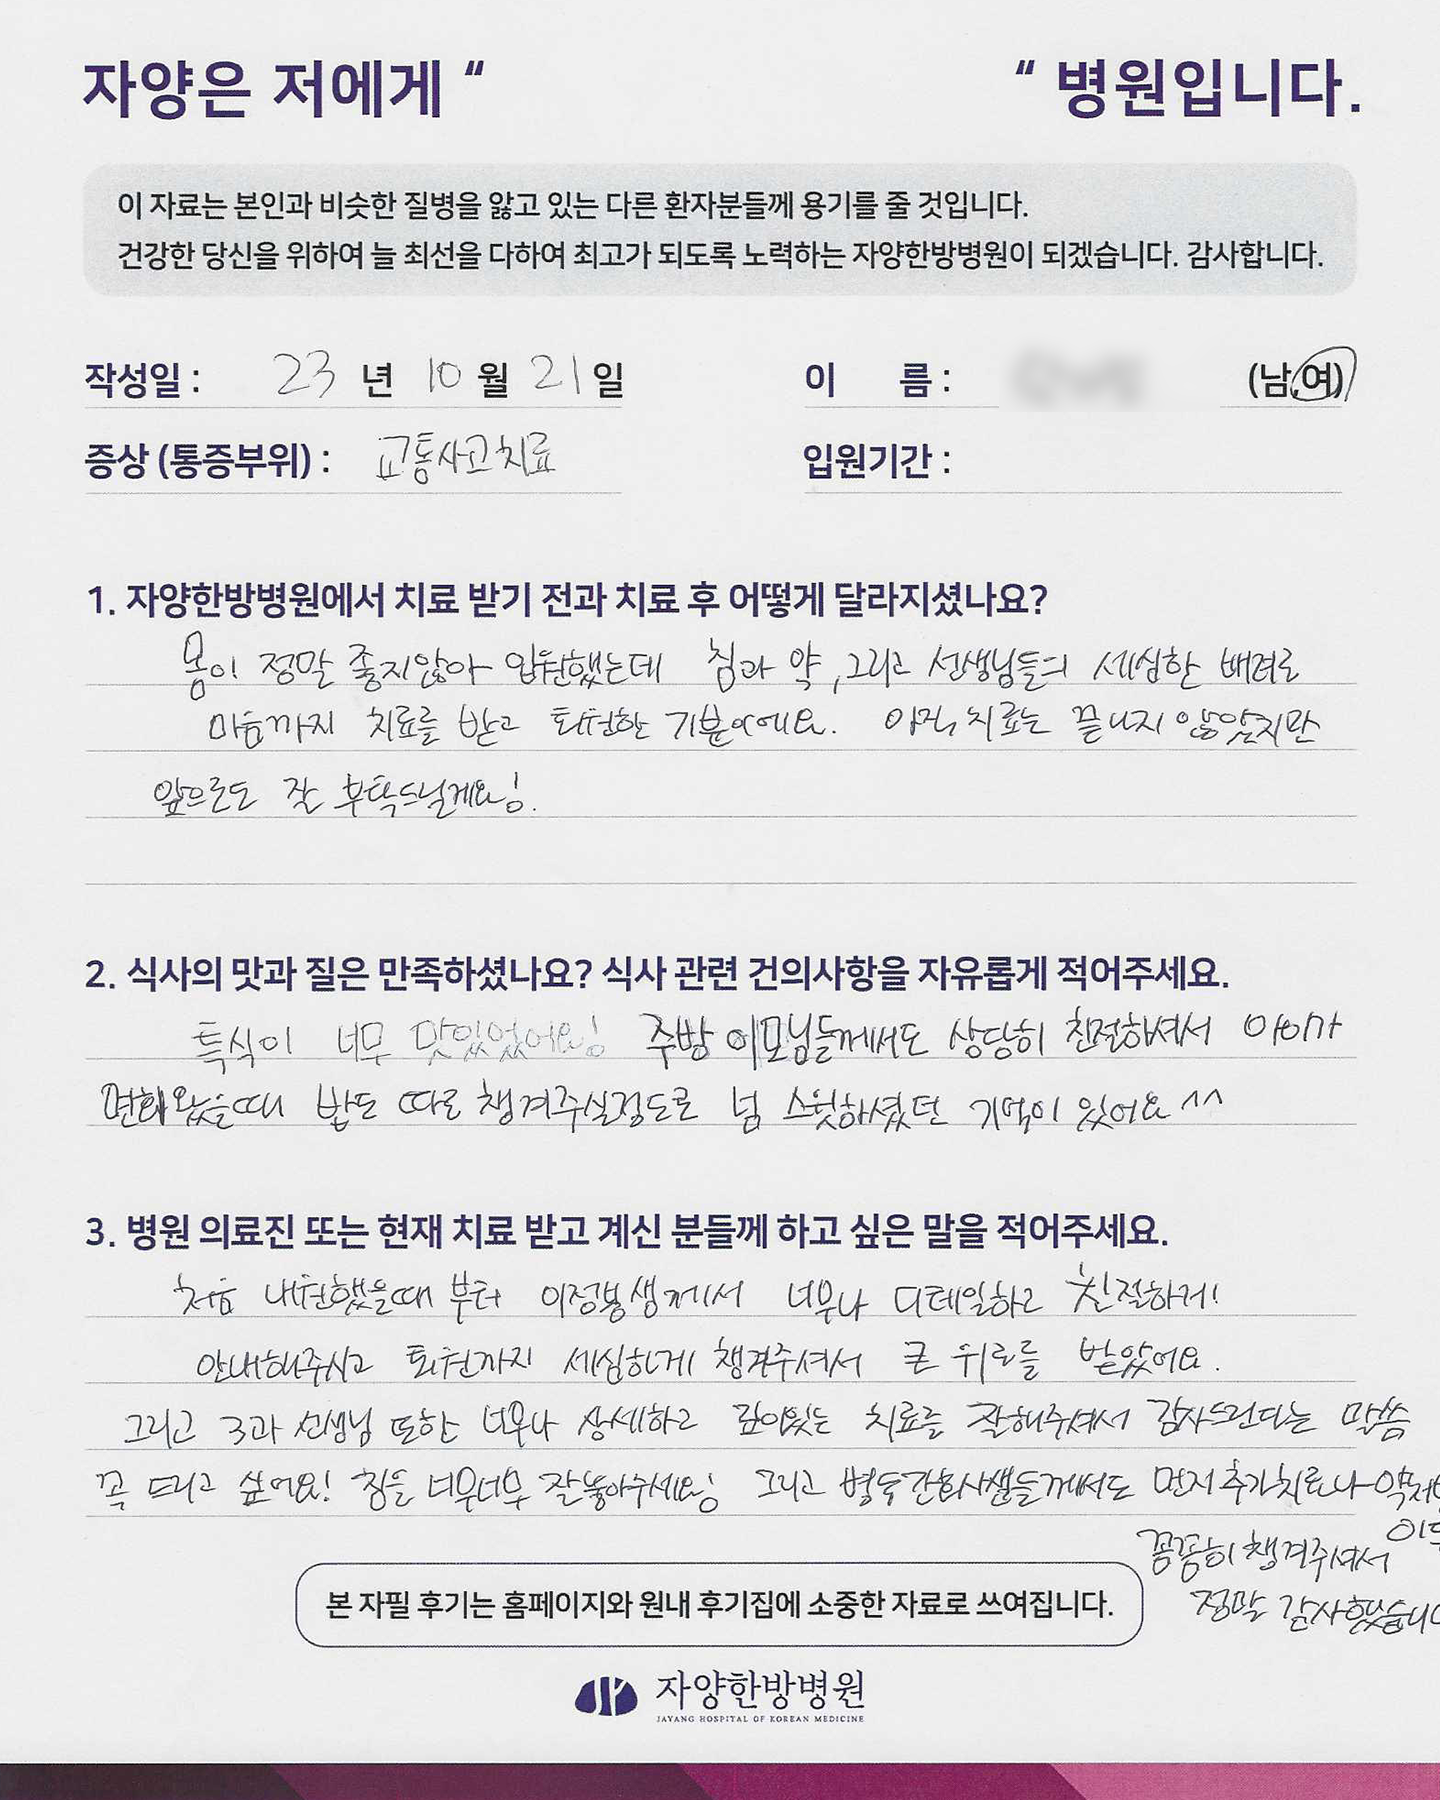 자양은 저에게 “ “ 병원입니다.
이 자료는 본인과 비슷한 질병을 앓고 있는 다른 환자분들께 용기를 줄 것입니다.
건강한 당신을 위하여 늘 최선을 다하여 최고가 되도록 노력하는 자양한방병원이 되겠습니다. 감사합니다.
작성일 : 23 년 10 월 21 일 이 름 : (남,여)
증상 (통증부위) : 교통사고치료 입원기간 :
1. 자양한방병원에서 치료 받기 전과 치료 후 어떻게 달라지셨나요?
몸이 정말 좋지않아 입원했는데 침과 약, 그리고 선생님들의 세심한 배려로
마음까지 치료를 받고 퇴원한 기분이에요. 아직 치료는 끝나지 않았지만
앞으로도 잘 부탁드릴게요!
2. 식사의 맛과 질은 만족하셨나요? 식사 관련 건의사항을 자유롭게 적어주세요.
특식이 너무 맛있었어요! 주방 이모님들께서도 상당히 친절하셔서 아이가
면회왔을때 밥도 따로 챙겨주실정도로 넘 스윗하셨던 기억이 있어요 ^^
3. 병원 의료진 또는 현재 치료 받고 계신 분들께 하고 싶은 말을 적어주세요.
처음 내원했을때 부터 께서 너무나 디테일하고 친절하게!
안내해주시고 퇴원까지 세심하게 챙겨주셔서 큰 위로를 받았어요.
그리고 3과 선생님 또한 너무나 상세하고 깊이있는 치료를 잘해주셔서 감사드린다는 말씀
꼭 드리고 싶어요! 침을 너무너무 잘놓아주세요! 그리고 병동간호사샘들께서도 먼저 추가치료나
꼼꼼히 챙겨주셔서
정말 감사했습니
본 자필 후기는 홈페이지와 원내 후기집에 소중한 자료로 쓰여집니다.
자양한방병원
JAYANG HOSPITAL OF KOREAN MEDICINE